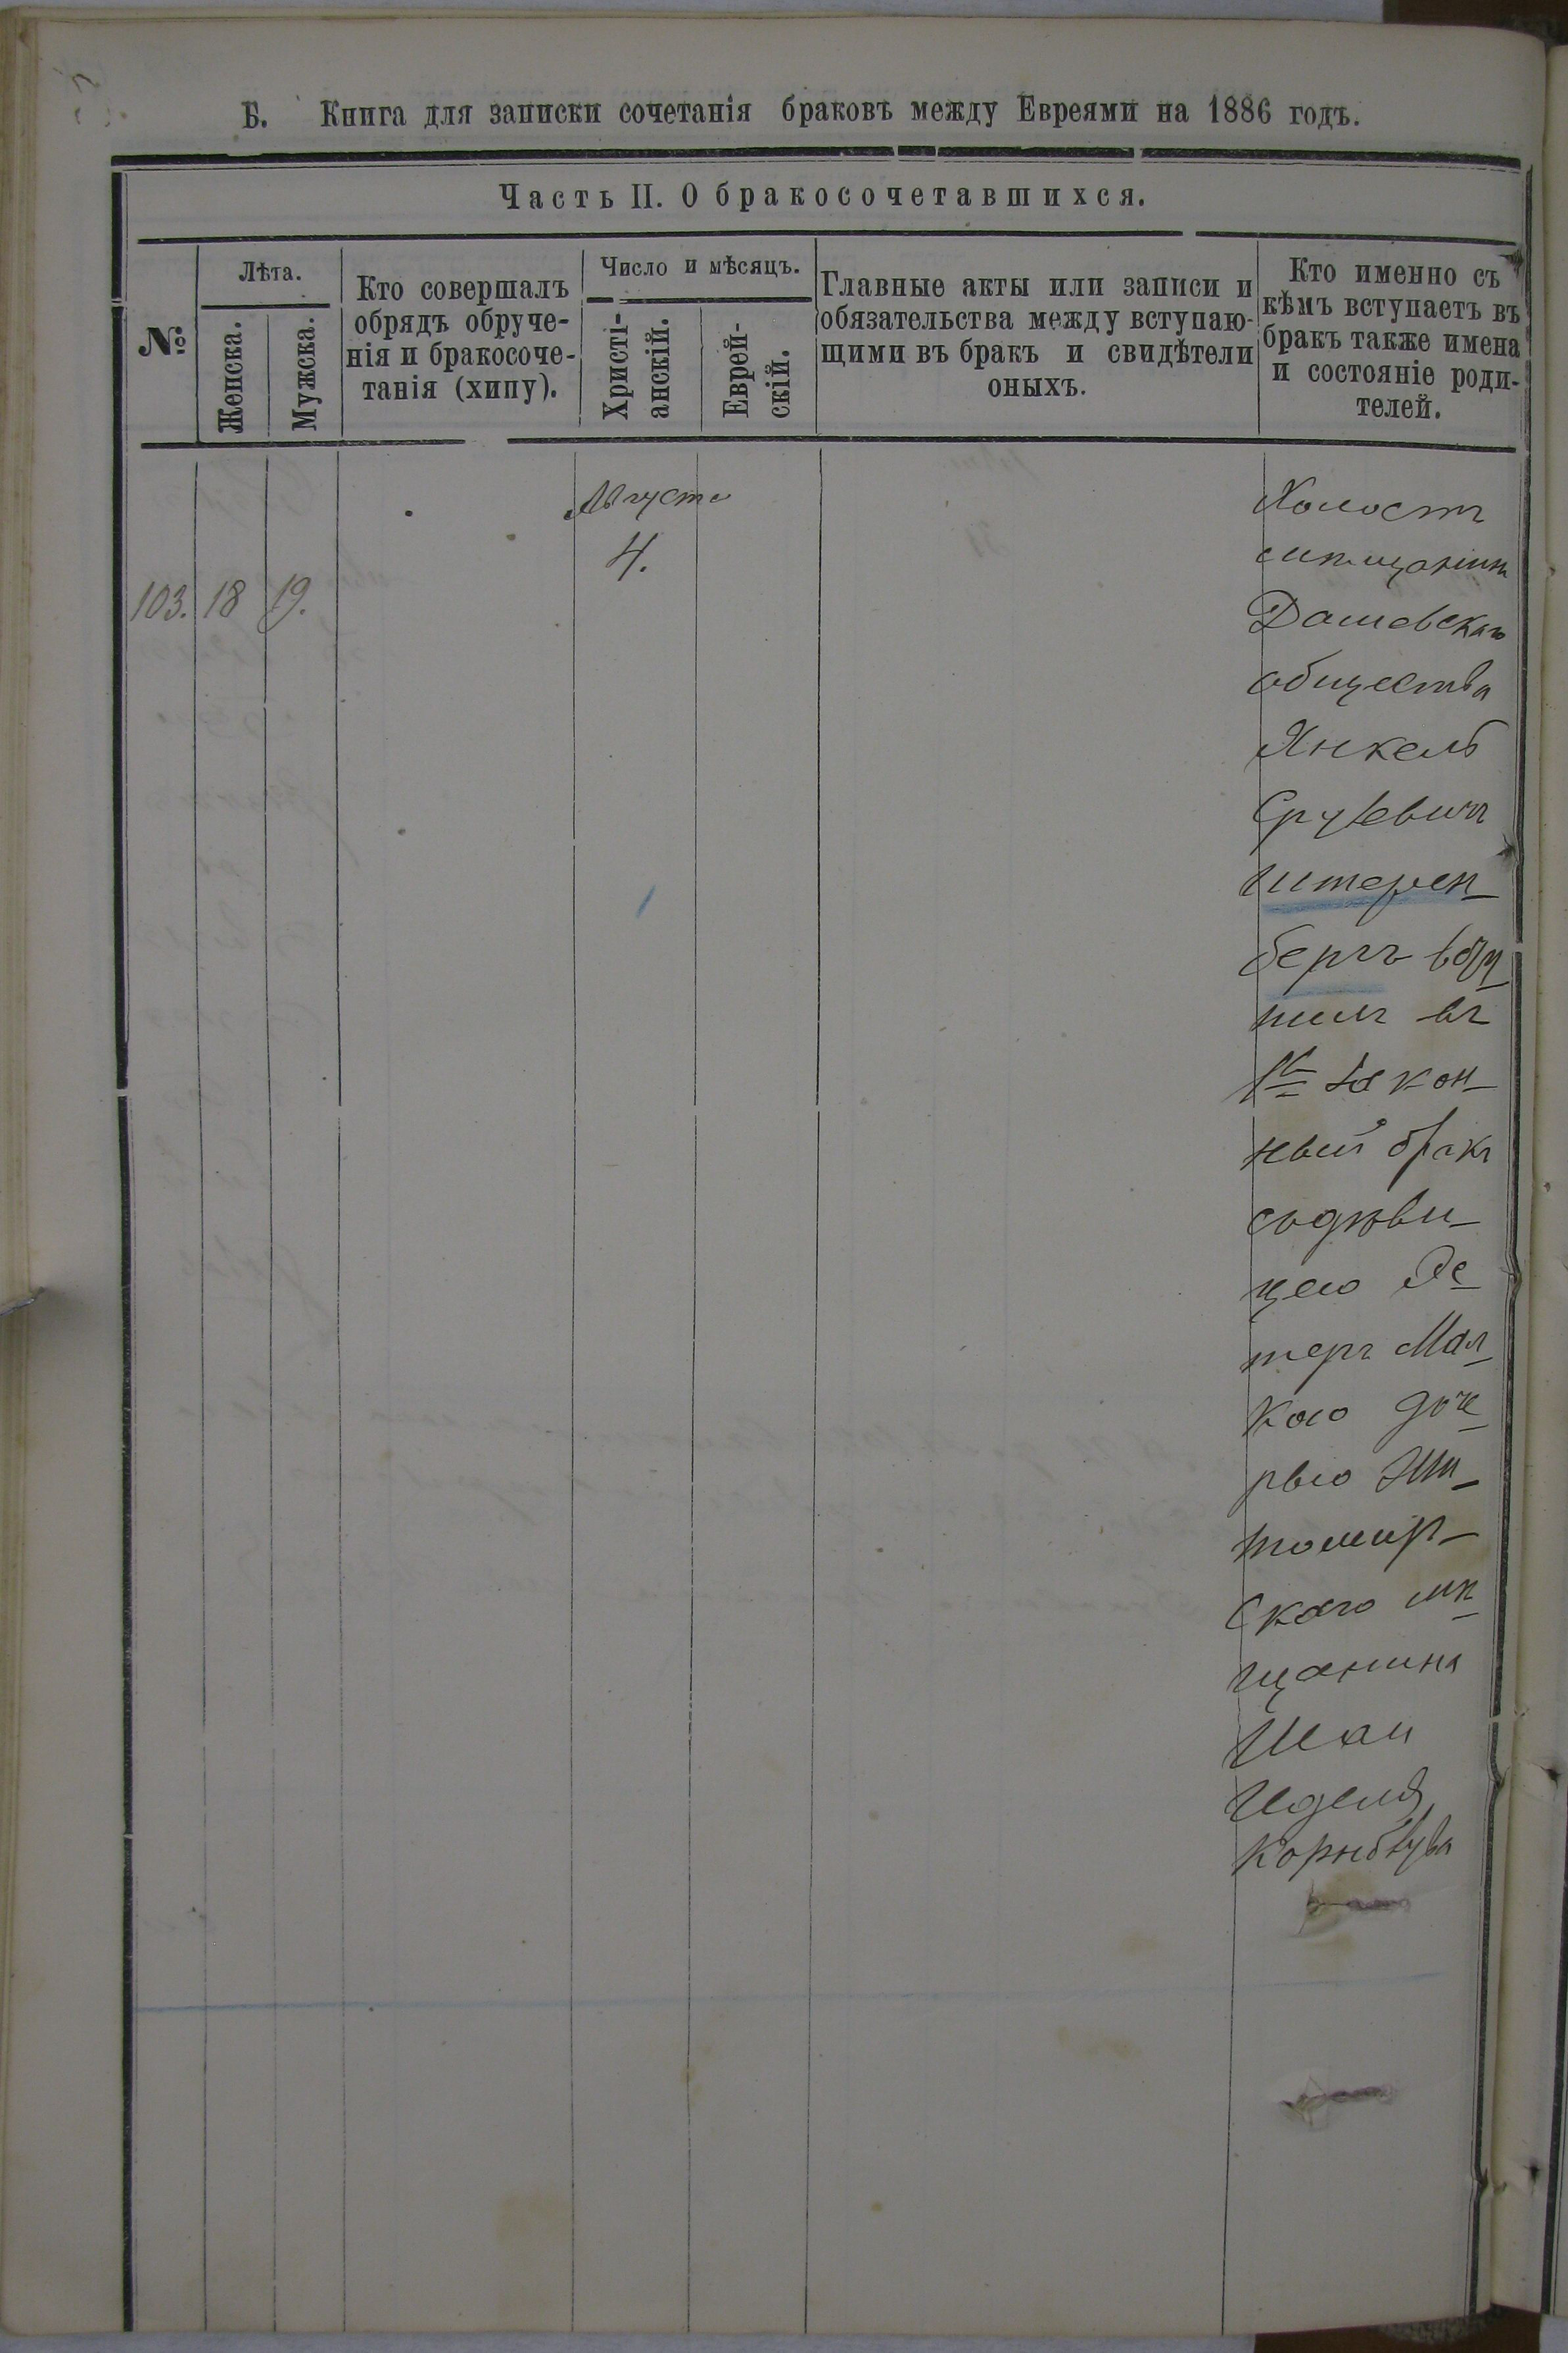 Б. Книга для записки сочетанія браковъ между Евреями на 1886 годъ.
Часть II. О бракосочетавшихся.
№
Лѣта.
Женска.
Мужска.
Кто совершалъ
обрядъ обруче-
нія и бракосоче-
танія (хипу).
Число и мѣсяцъ.
Христі-
анскій.
Еврей-
скій.
Главные акты или записи и
обязательства между вступаю-
щими въ бракъ и свидѣтели
оныхъ.
Кто именно съ
кѣмъ вступаетъ въ
бракъ также имена
и состояніе роди-
телей.
103. 18 19.
Августа
4.
Холостъ
мѣщанинъ
Дашевскаго
общества
Янкель
Срулевичъ
Штерен-
бергъ всту-
пилъ въ
1й закон-
ный бракъ
съ дѣви-
цею Эс-
теръ Мал-
кою доче-
рью Жи-
томир-
скаго мѣ-
щанина
Шаи
Иделя